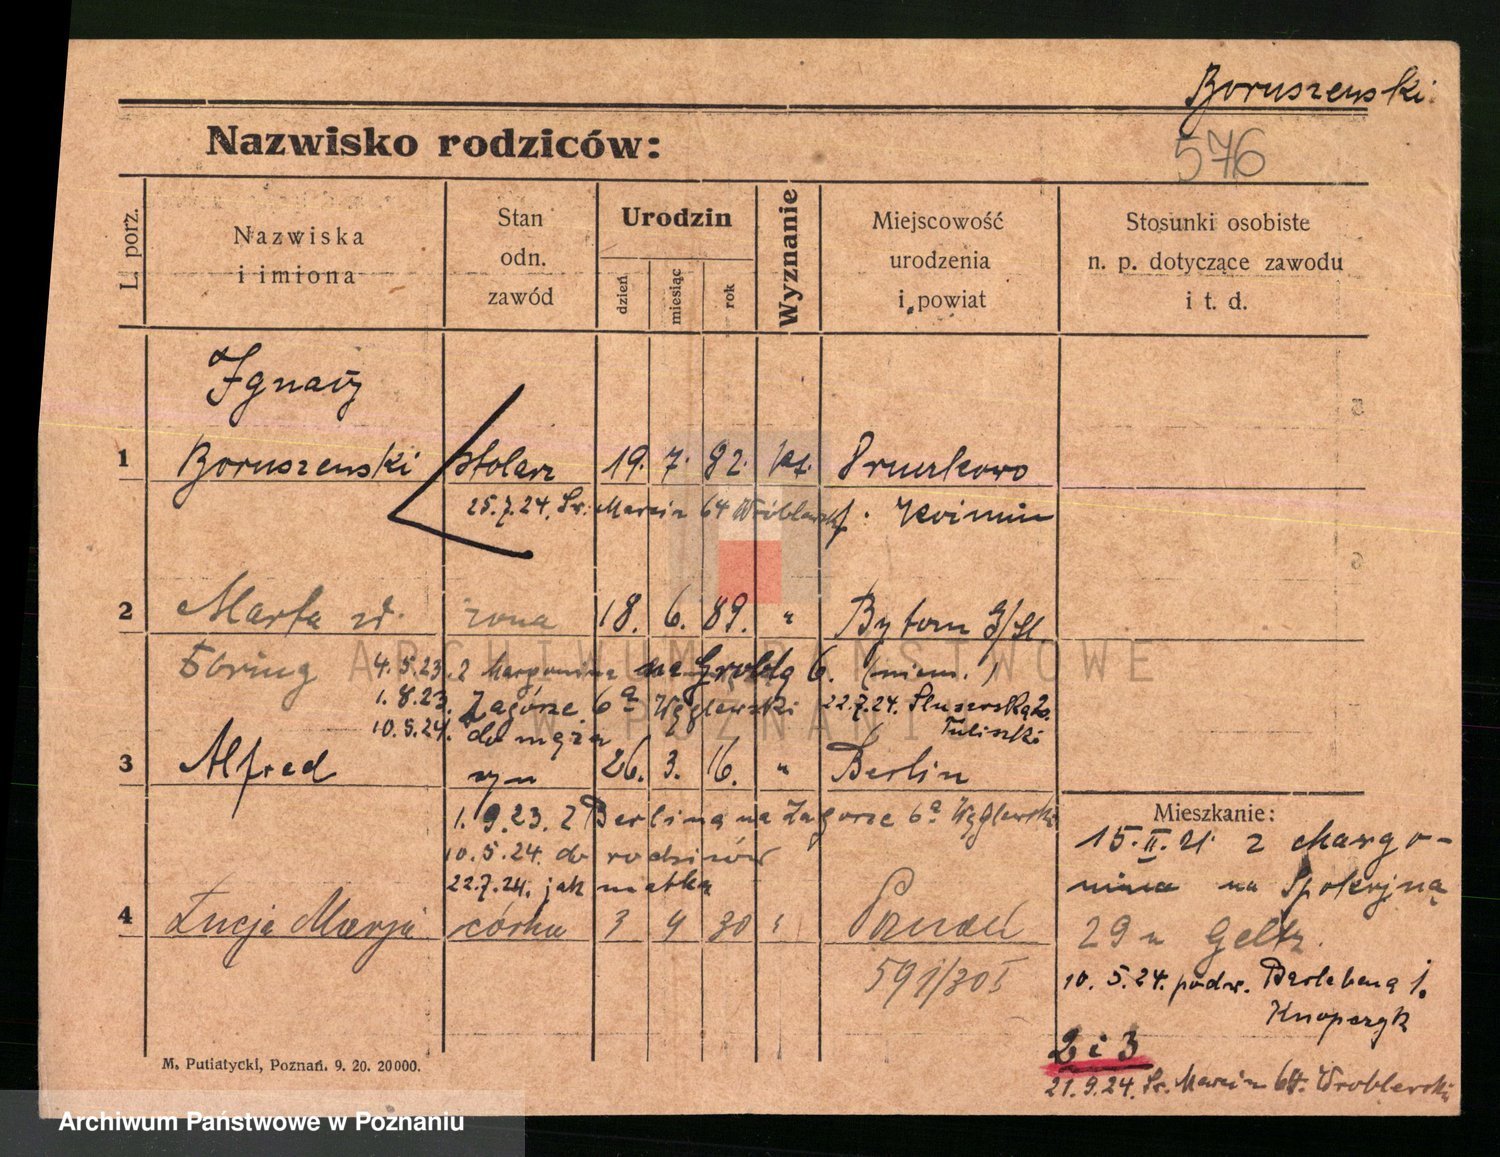 Boruszewski
Nazwisko rodziców:
576
L. porz.
Nazwiska
i imiona
Stan
odn.
zawód
Urodzin
dzień
miesiąc
rok
Wyznanie
Miejscowość
urodzenia
i powiat
Stosunki osobiste
n. p. dotyczące zawodu
i t. d.
Ignacy
1 Boruszewski stolarz 19. 7. 82. kt.
25.7.24. Św. Marcin 64 Wróblewski
2 Marta żona 18. 6. 89. " Bytom G/Sl
4.5.23. z Margonina na Groblę 6. (niem.)
1.8.23. Zagórze 6a Węglewski 22.7.24.
10.5.24. do męża
3 Alfred syn 26. 3. 16. " Berlin
1.9.23. z Berlina na Zagórze 6a Węglewski
10.5.24. do rodziców
22.7.24. jak matka
4 Łucja Marja córka 3 4 30 Poznań
591/30 I
Mieszkanie:
15.II.21. z Margo-
nina na Spokojną
29 u
10.5.24. podw.
2 i 3
21.9.24. Św. Marcin 64. Wróblewski
M. Putiatycki, Poznań. 9. 20. 20000.
ARCHIWUM PAŃSTWOWE
W POZNANIU
Archiwum Państwowe w Poznaniu